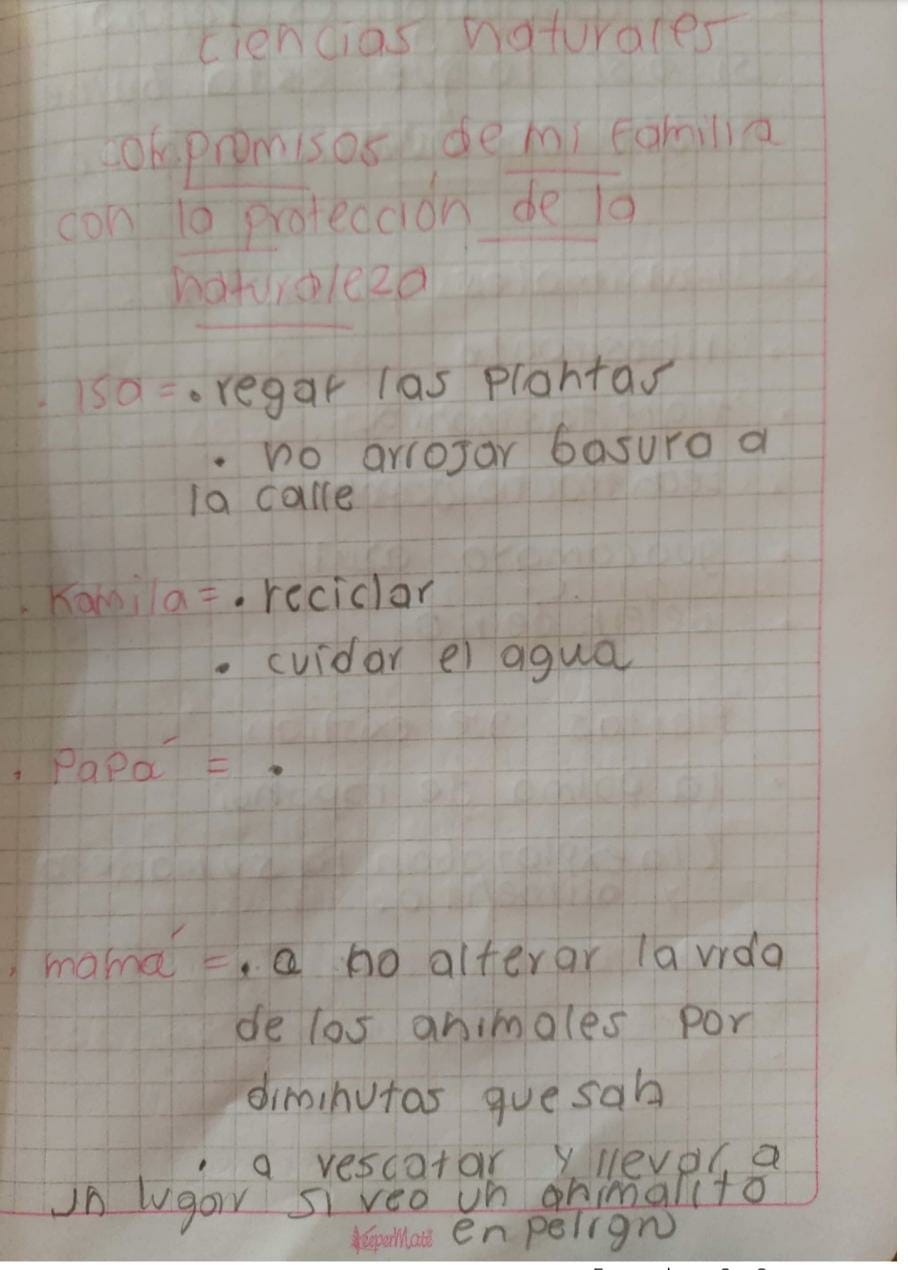 ciencias naturales
compromisos de mi familia
con la protección de la
naturaleza
. Isa = . regar las plantas
. no arrojar basura a
la calle
. Kamila = . reciclar
. cuidar el agua
. Papá = .
. mamá = . a no alterar la vida
de los animales por
diminutas que sah
. a rescatar y llevar a
un lugar si veo un animalito
en peligro
KeeperMate